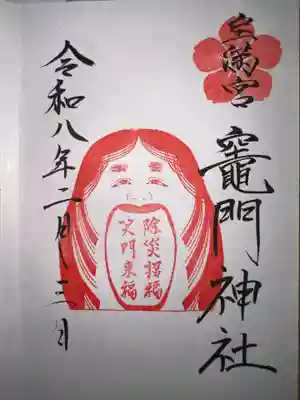 宝満宮
竈門神社
除災招福
笑門来福
令和八年二月十三日